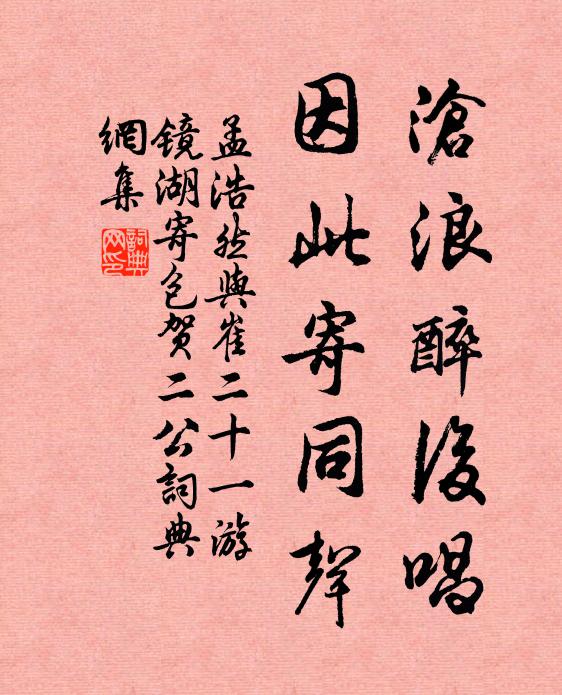 滄浪醉後唱
因此寄同聲
孟浩然與崔二十一游
鏡湖寄包賀二公詞典
網集
詞典
网印